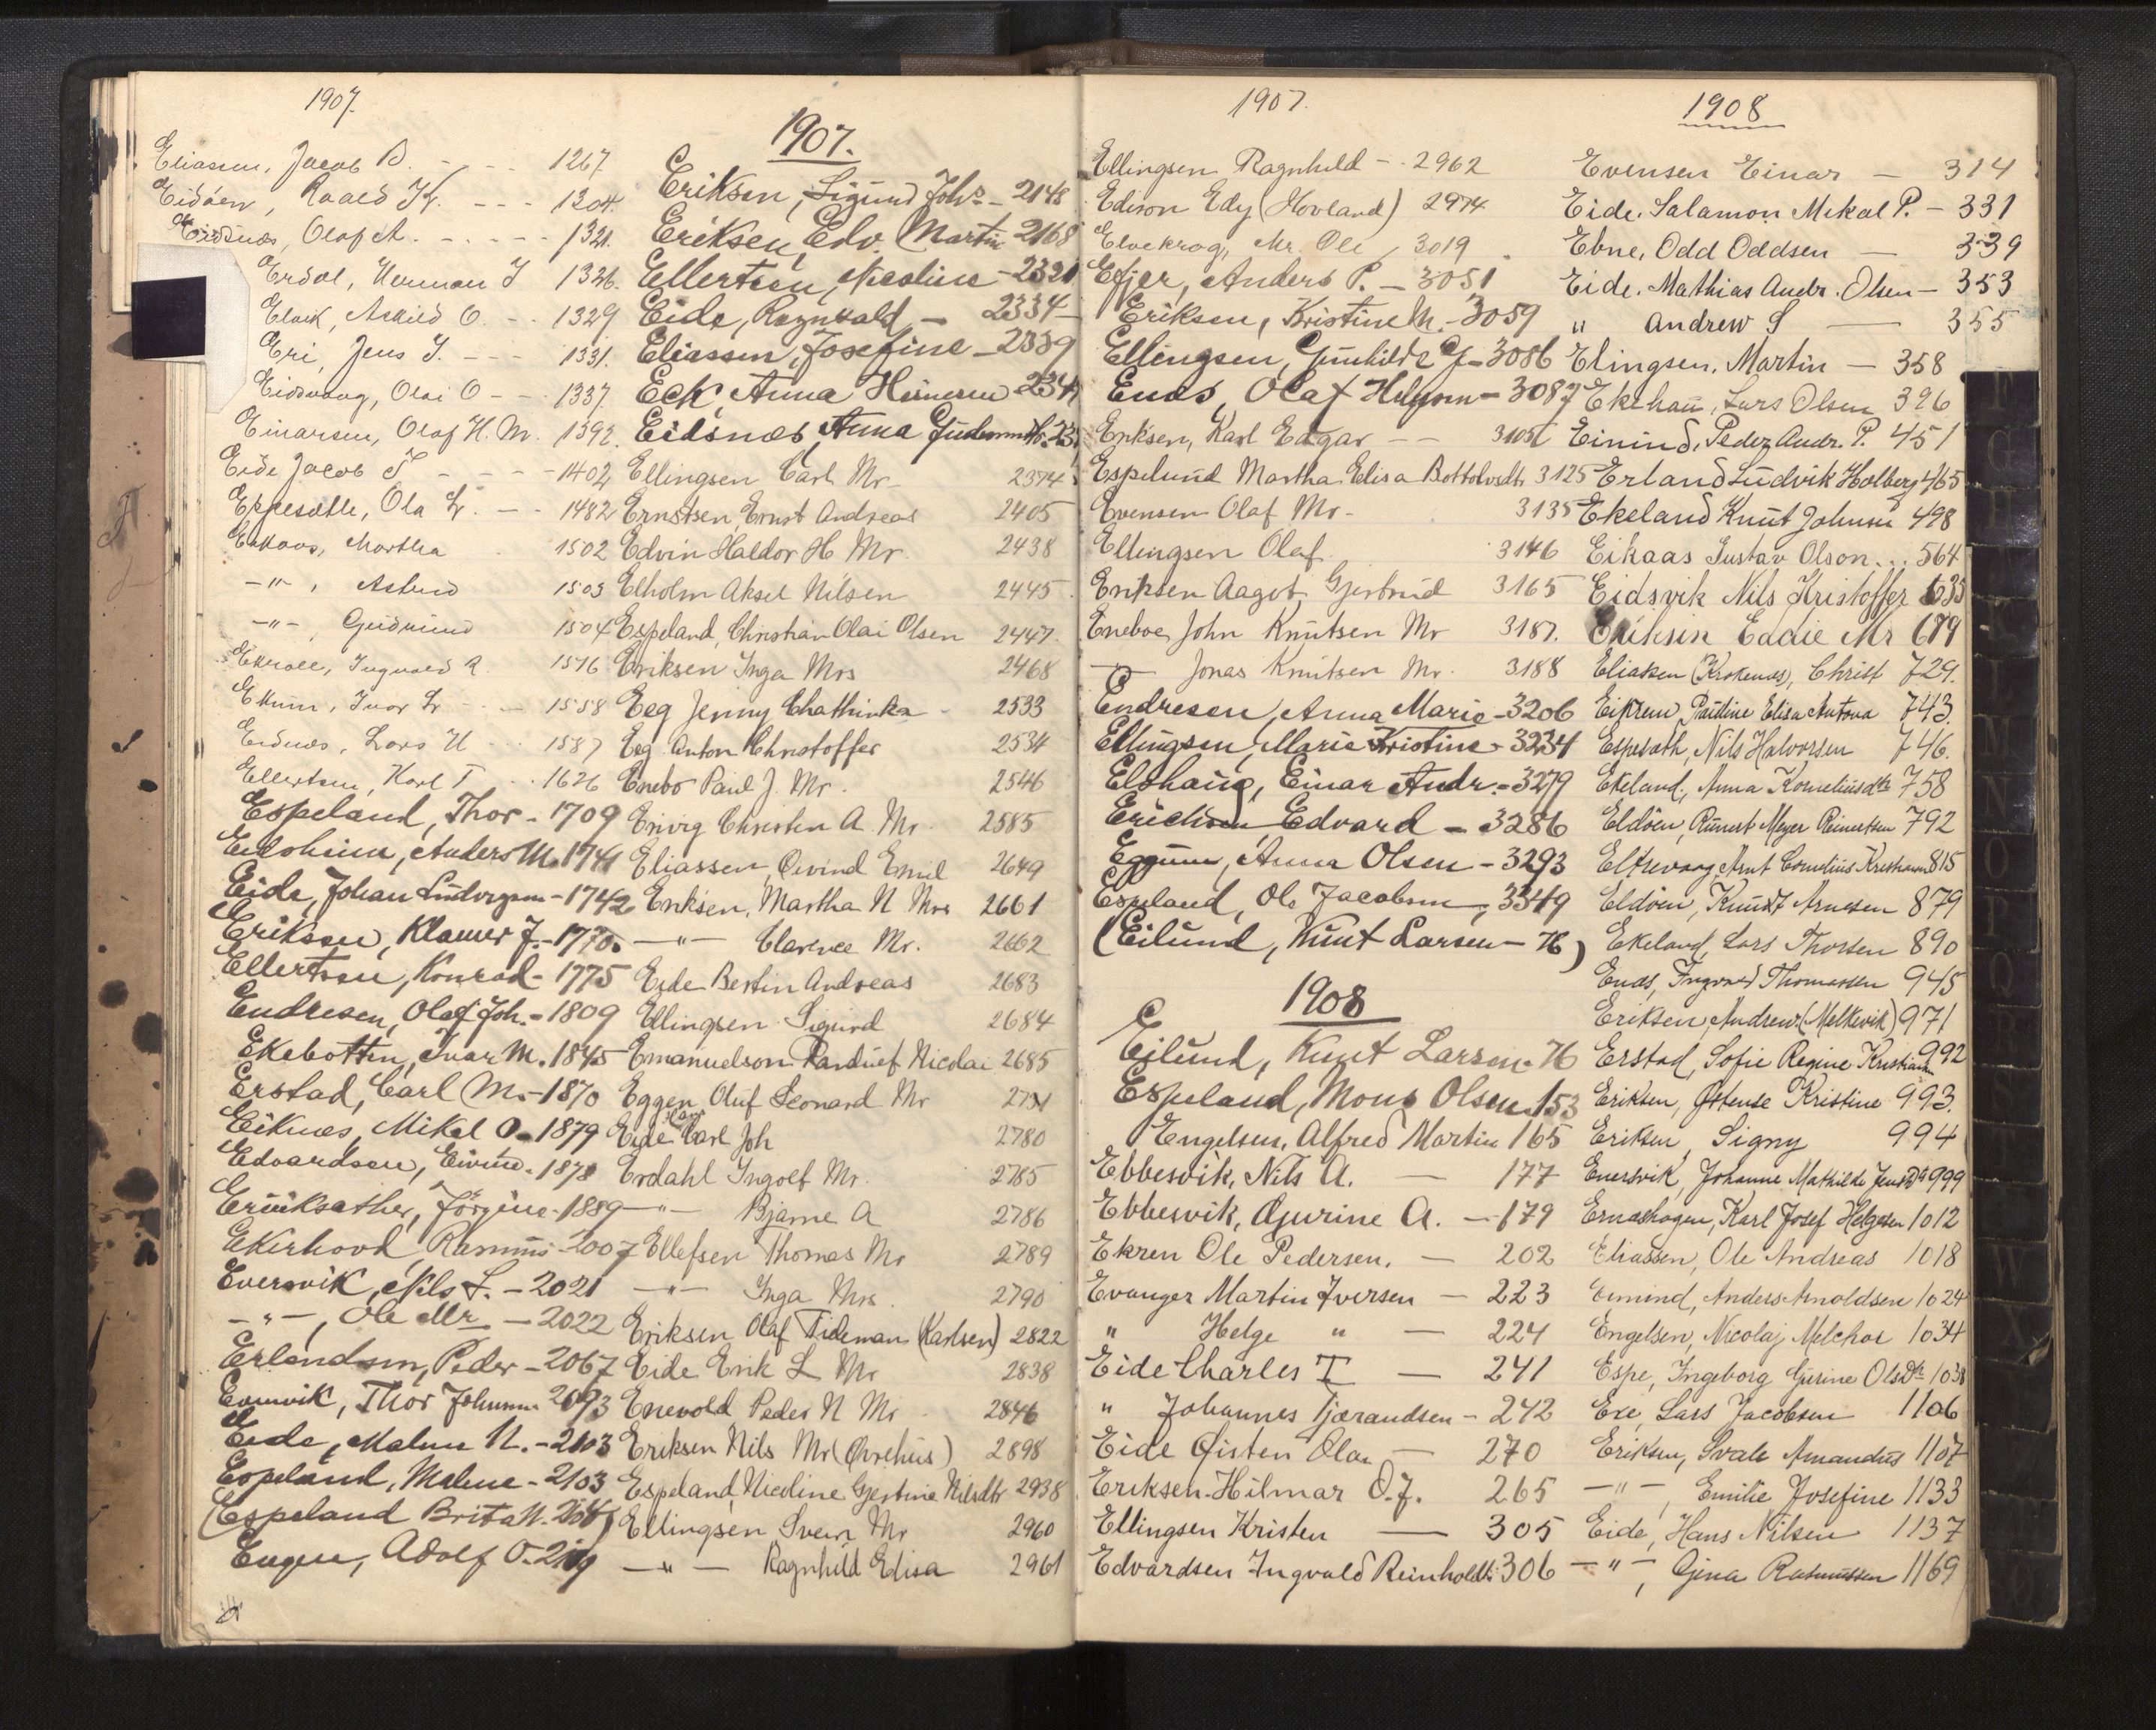 1907.
Eliassen, Jacob B. - - 1267
Eidöen, Raald K. - - - 1304.
Eidsnæs, Olaf A. - - - - - 1321.
Erdal, Herman J 1326.
Elvik, Askild O. - - 1329
Eri, Jens J. - - - 1331.
Eidsvaag, Olai O - - 1337.
Einarsen, Olaf H. Mr. 1392.
Eide Jacob T - - - - 1402
Eppesætte, Ola - - 1482
Martha 1502
-"- , Astrid 1503
-"- , Gudmund 1504
Ingvald R 1516
Ekum, Ivar - - - 1558
Eidnes, Lars H - - 1587
Ellertsen, Karl T - - 1626
Espeland, Thor - 1709
Anders M. 1741
Eide, Johan Ludvigsen - 1742
Eriksen, Klamer J. - 1770.
Ellertsen, Konrad - 1775
Endresen, Olaf Joh. - 1809
Ekebotten, Ivar M. 1845
Erstad, Carl M. - 1870
Eiknes, Mikal O. 1879
Edvardsen, Eivind. 1878
Jörgine - 1889
Ekerhovd Rasmus - 2007
Eversvik, Nils L. - 2021
-"-, Ole Mr - 2022
Erlendsen, Peder - 2067
Thor Johannes 2093
Eide, Malene N. - 2103
Espeland, Malene - 2103
(Espeland Brita
Adolf O.
1907.
Eriksen, Sigurd Johs - 2148
Eriksen, Edv. Martin 2168
Ellertsen, Nicoline - 2321
Eide, Ragnvald - 2334
Eliassen, Josefine - 2339
Eck, Anna
Eidsnes, Anna
Ellingsen Carl Mr - 2374
Ernstsen, Ernst Andreas 2405
Edvin Haldor H Mr. 2438
Elholm Aksel Nilsen 2445
Espeland, Christian Olai Olsen 2447.
Eriksen Inga Mrs 2468
Eeg Jenny Chathinka - 2533
Eeg Anton Christoffer 2534
Enebo Paul J. Mr. 2546
Christen A. Mr. 2585
Eliassen, Oivind Emil 2649
Eriksen, Martha N Mrs 2661
-"- Clarence Mr. 2662
Eide Bertin Andreas 2683
Ellingsen Sigurd 2684
Emanuelson Nicolai 2685
Eggen Oluf Leonard Mr
Eide Carl Joh 2780
Erdahl Ingolf Mr. 2785
-"- Bjarne A 2786
Ellefsen Thomas Mr 2789
-"- Inga Mrs. 2790
Eriksen Olaf Tideman (Karlsen) 2822
Eide Erik L Mr 2838
Enevold Peder N Mr 2846
Eriksen Nils Mr (Øvrehus) 2898
Espeland, Nicoline Gjertine Nilsdtr 2938
Ellingsen Svein Mr 2960
-"- Ragnhild Edisa 2961
1907.
Ellingsen Ragnhild - . 2962
Edison Edy (Hovland) 2974
Elvekrog, Mr. Ole , 3019
Efjer, Anders P. - 3051
Eriksen, Kristine M. - 3059
Ellingsen, Gunhild - 3086
Olaf - 3087
Eriksen, Karl Edgar - - 3105
Espelund Martha Elisa Bottolvsdtr 3125
Evensen Olaf Mr - 3135
Ellingsen Olaf 3146
Eriksen Aagot Gjertrud 3165
Eneboe John Knutsen Mr 3187.
-"- Jonas Knutsen Mr. 3188
Endresen, Anna Marie - 3206
Ellingsen, Marie Kristine - 3234
Elshaug, Einar Andr. - 3279
Erichsen Edvard - 3286
Eggum, Anna Olsen - 3293
Espeland, Ole Jacobsen - 3349
(Eilund, Knut Larsen - 76)
1908
Eilund, Knut Larsen. 76
Espeland, Mons Olsen. 153
Engelsen, Alfred Martin 165
Ebbesvik, Nils A. — 177
Ebbesvik, Gjurine A. — 179
Ekren Ole Pedersen. — 202
Evanger Martin Iversen — 223
" Helge " — 224
Eide Charles T — 241
" Johannes Tjerandsen - 242
Eide Gisten Olai — 270
Eriksen Hilmar O. J. 265
Ellingsen Kristen — 305
Edvardsen Ingvald Reinholdt. 306
1908
Evensen Einar — 314
Eide. Salamon Mikal P. - 331
Ebne, Odd Oddsen — 339
Eide. Mathias Andr. Olsen - 353
" Andrew S — 355
Elingsen. Martin — 358
Ekehaug, Lars Olsen 396
Einind, Peder Andr. P. 451
Erland Ludvik Holberg 465
Ekeland Knut Johnsen 498
Eikaas Gustav Olson... 564
Eidsvik Nils Kristoffer 635
Eriksen Eddie Mr 679
Eliassen (Krokenæs), Christ 729.
Eikrem, Pauline Elisa Antona 743.
Nils Halvorsen 746.
Ekeland, Anna Korneliusdtr 758
Eldöen, Meyer Reinertsen 792
Eltrevaag, Arnt Cornelius 815
Eldöen, Knut Arnesen 879
Ekeland, Lars Thorsen 890
Ingvald Thomassen 945
Eriksen, Andrew. (Melkevik) 971
Erstad, Sofie Regine 992
Eriksen, Østense Kristine 993.
Eriksen, Signy 994
Enersvik, Johanne Mathilde 999
Ernashagen, Karl Josef Helgesen 1012
Eliassen, Ole Andreas 1018
Anders Arnoldsen 1024
Engelsen, Nicolaj Melchor 1034
Espe, Ingeborg Gurine 1038
Exe, Lars Jacobsen 1106
Eriksen, Svale Amandus 1107
-"-, Emilie Josefine 1133
Eide, Hans Nilsen 1137
-"-, Gjina Rasmussen 1169
T
G
N
O
S
W
X